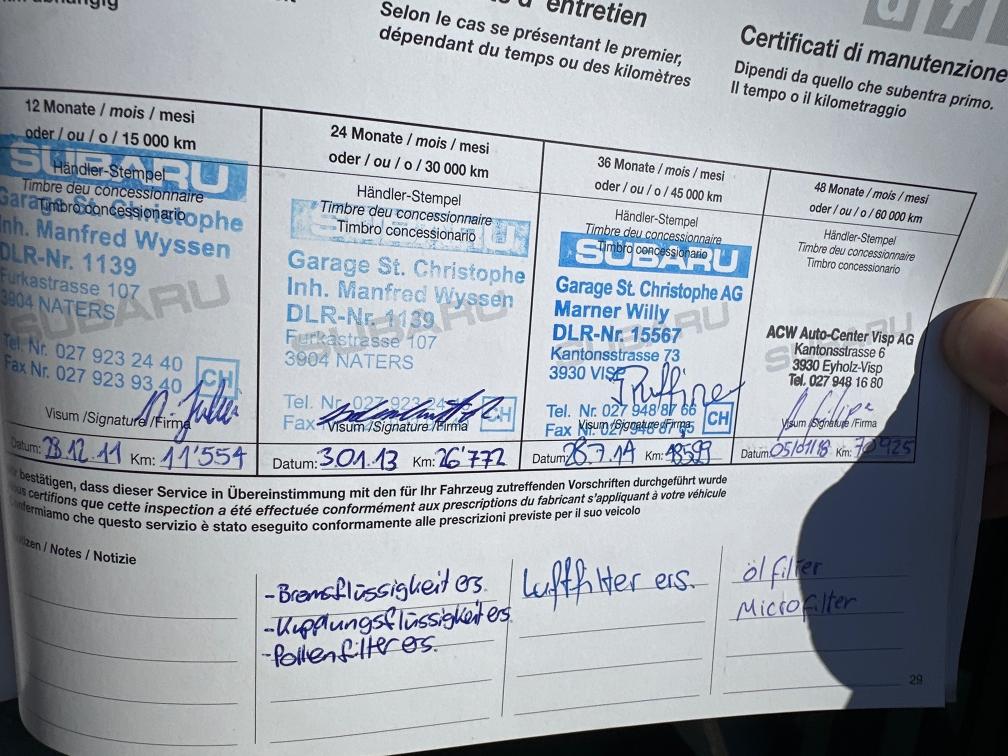 d'entretien
Selon le cas se présentant le premier,
dépendant du temps ou des kilomètres
Certificati di manutenzione
Dipendi da quello che subentra primo.
Il tempo o il kilometraggio
12 Monate / mois / mesi
oder / ou / o / 15 000 km
SUBARU
Händler-Stempel
Timbre deu concessionnaire
Timbro concessionario
Garage St. Christophe
Inh. Manfred Wyssen
DLR-Nr. 1139
Furkastrasse 107
3904 NATERS
SUBARU
Tel. Nr. 027 923 24 40
Fax Nr. 027 923 93 40
CH
Visum /Signature /Firma
Datum: 28.12.11 Km: 11'554
24 Monate / mois / mesi
oder / ou / o / 30 000 km
Händler-Stempel
Timbre deu concessionnaire
Timbro concessionario
Garage St. Christophe
Inh. Manfred Wyssen
DLR-Nr. 1139
Furkastrasse 107
3904 NATERS
SUBARU
Tel. Nr. 027 923
Fax
CH
Visum /Signature /Firma
Datum: 3.01.13 Km: 26'772
36 Monate / mois / mesi
oder / ou / o / 45 000 km
Händler-Stempel
Timbre deu concessionnaire
Timbro concessionario
SUBARU
Garage St. Christophe AG
Marner Willy
DLR-Nr. 15567
Kantonsstrasse 73
3930 VISP
SUBARU
Tel. Nr. 027 948 87 66
Fax Nr. 027 948 87
CH
Visum /Signature /Firma
Datum: 28.7.14 Km: 48599
48 Monate / mois / mesi
oder / ou / o / 60 000 km
Händler-Stempel
Timbre deu concessionnaire
Timbro concessionario
ACW Auto-Center Visp AG
Kantonsstrasse 6
3930 Eyholz-Visp
Tel. 027 948 16 80
Visum /Signature /Firma
Datum: 05/01/18 Km: 70925
bestätigen, dass dieser Service in Übereinstimmung mit den für Ihr Fahrzeug zutreffenden Vorschriften durchgeführt wurde
certifions que cette inspection a été effectuée conformément aux prescriptions du fabricant s'appliquant à votre véhicule
che questo servizio è stato eseguito conformamente alle prescrizioni previste per il suo veicolo
/ Notes / Notizie
-Bremsflüssigkeit ers.
-Kupplungsflüssigkeit ers.
-Pollenfilter ers.
Luftfilter ers.
ölfilter
Microfilter
29